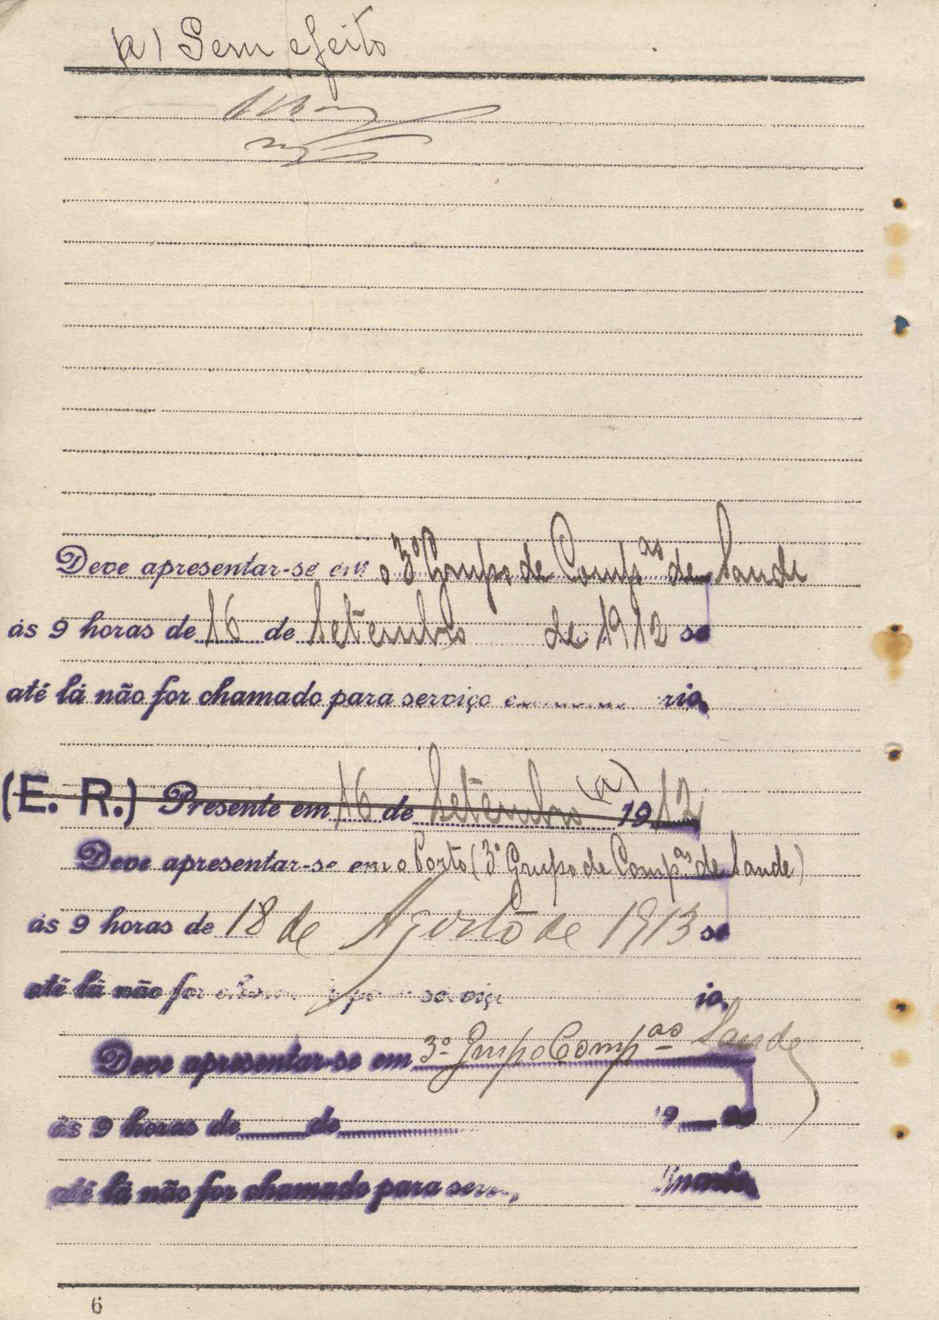 (a) Sem efeito
Deve apresentar-se em o 3º Grupo de Comp.as de Saude
ás 9 horas de 16 de Setembro de 1912 se
até lá não for chamado para serviço
(E. R.) Presente em 16 de Setembro (a) 1912
Deve apresentar-se em o Porto (3º Grupo de Comp.as de Saude)
ás 9 horas de 18 de Agosto de 1913 se
até lá não for
Deve apresentar-se em 3º Grupo Comp.as Saude
ás 9 horas de de 19 se
até lá não for chamado para
6